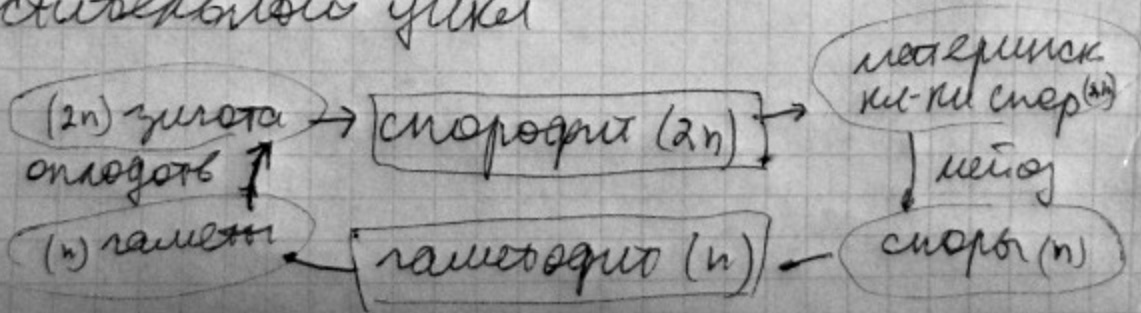 цикл
(2n) зигота → спорофит (2n) → материнск
кл-ки спор (2n)
оплодотв
мейоз
(n) гаметы
гаметофит (n)
споры (n)